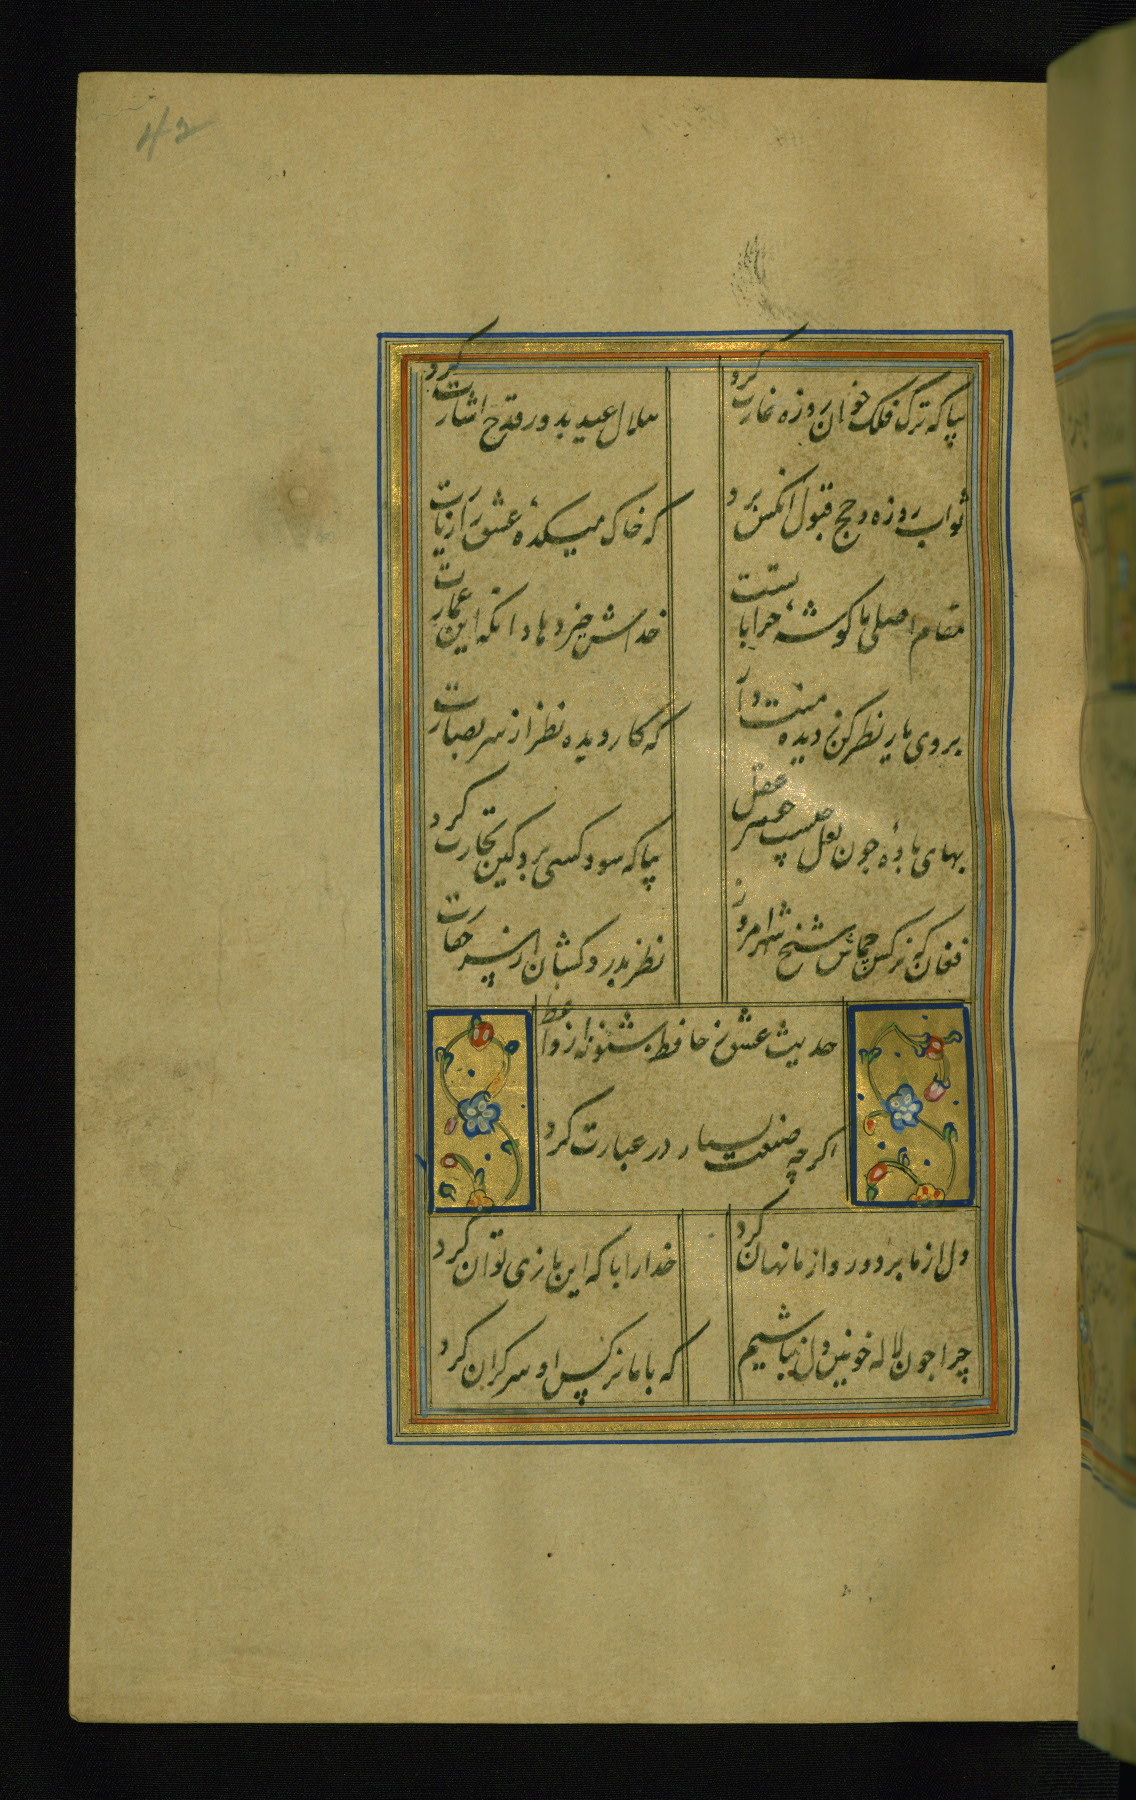 42
بیا که ترک فلک خوان روزه غارت کرد
هلال عید بدور قدح اشارت کرد
ثواب روزه و حج قبول انکس برد
که خاک میکدهٔ عشق را زیارت
مقام اصلی ما کوشهٔ خراباتست
خداش خیر دهاد انکه این عمارت
بروی یار نظر کن ز دیده منت دار
که کار دیده نظر از سر بصارت
بهای بادهٔ چون لعل چیست جوهر عقل
بیا که سود کسی برد کین تجارت کرد
فغان که نرکس جماش شیخ شهر امروز
نظر بدرد کشان از سر حقارت
حدیث عشق ز حافظ شنو نه از واعظ
اکرچه صنعت بسیار در عبارت کرد
دل از ما برد و روی از ما نهان کرد
خدارا با که این بازی توان کرد
چرا چون لاله خونین دل نباشیم
که با ما نرکس او سرکران کرد